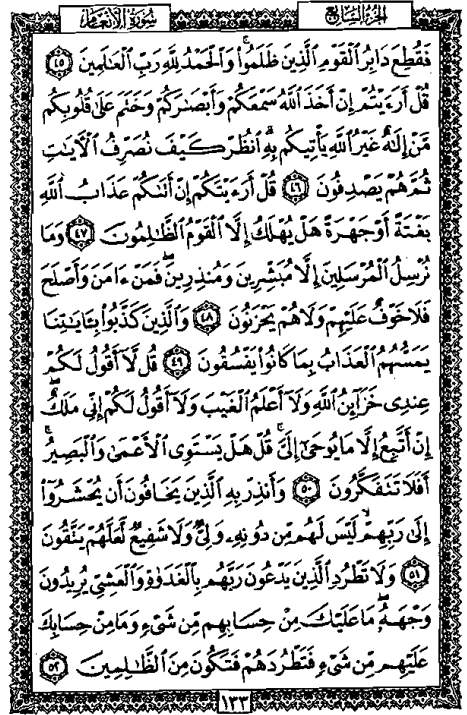 سُورَةُ الأَنْعَامِ الجُزْءُ السَّابِعُ
فَقُطِعَ دَابِرُ ٱلْقَوْمِ ٱلَّذِينَ ظَلَمُوا۟ ۚ وَٱلْحَمْدُ لِلَّهِ رَبِّ ٱلْعَـٰلَمِينَ ٤٥
قُلْ أَرَءَيْتُمْ إِنْ أَخَذَ ٱللَّهُ سَمْعَكُمْ وَأَبْصَـٰرَكُمْ وَخَتَمَ عَلَىٰ قُلُوبِكُم
مَّنْ إِلَـٰهٌ غَيْرُ ٱللَّهِ يَأْتِيكُم بِهِ ۗ ٱنظُرْ كَيْفَ نُصَرِّفُ ٱلْـَٔايَـٰتِ
ثُمَّ هُمْ يَصْدِفُونَ ٤٦ قُلْ أَرَءَيْتَكُمْ إِنْ أَتَىٰكُمْ عَذَابُ ٱللَّهِ
بَغْتَةً أَوْ جَهْرَةً هَلْ يُهْلَكُ إِلَّا ٱلْقَوْمُ ٱلظَّـٰلِمُونَ ٤٧ وَمَا
نُرْسِلُ ٱلْمُرْسَلِينَ إِلَّا مُبَشِّرِينَ وَمُنذِرِينَ ۖ فَمَنْ ءَامَنَ وَأَصْلَحَ
فَلَا خَوْفٌ عَلَيْهِمْ وَلَا هُمْ يَحْزَنُونَ ٤٨ وَٱلَّذِينَ كَذَّبُوا۟ بِـَٔايَـٰتِنَا
يَمَسُّهُمُ ٱلْعَذَابُ بِمَا كَانُوا۟ يَفْسُقُونَ ٤٩ قُل لَّآ أَقُولُ لَكُمْ
عِندِى خَزَآئِنُ ٱللَّهِ وَلَآ أَعْلَمُ ٱلْغَيْبَ وَلَآ أَقُولُ لَكُمْ إِنِّى مَلَكٌ ۖ
إِنْ أَتَّبِعُ إِلَّا مَا يُوحَىٰٓ إِلَىَّ ۚ قُلْ هَلْ يَسْتَوِى ٱلْأَعْمَىٰ وَٱلْبَصِيرُ ۚ
أَفَلَا تَتَفَكَّرُونَ ٥٠ وَأَنذِرْ بِهِ ٱلَّذِينَ يَخَافُونَ أَن يُحْشَرُوٓا۟
إِلَىٰ رَبِّهِمْ ۙ لَيْسَ لَهُم مِّن دُونِهِۦ وَلِىٌّ وَلَا شَفِيعٌ لَّعَلَّهُمْ يَتَّقُونَ
٥١ وَلَا تَطْرُدِ ٱلَّذِينَ يَدْعُونَ رَبَّهُم بِٱلْغَدَوٰةِ وَٱلْعَشِىِّ يُرِيدُونَ
وَجْهَهُۥ ۖ مَا عَلَيْكَ مِنْ حِسَابِهِم مِّن شَىْءٍ وَمَا مِنْ حِسَابِكَ
عَلَيْهِم مِّن شَىْءٍ فَتَطْرُدَهُمْ فَتَكُونَ مِنَ ٱلظَّـٰلِمِينَ ٥٢
١٣٣